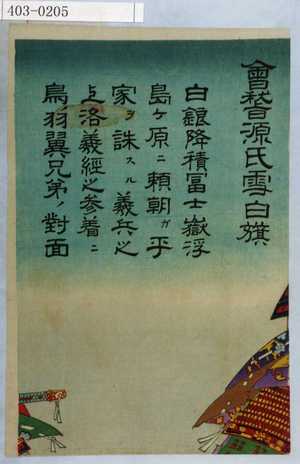 403-0205
會稽源氏雪白旗
白銀降積冨士嶽浮
島ヶ原ニ頼朝ガ平
家ヲ誅スル義兵之
上洛義經之参着ニ
鳥羽翼兄弟ノ對面